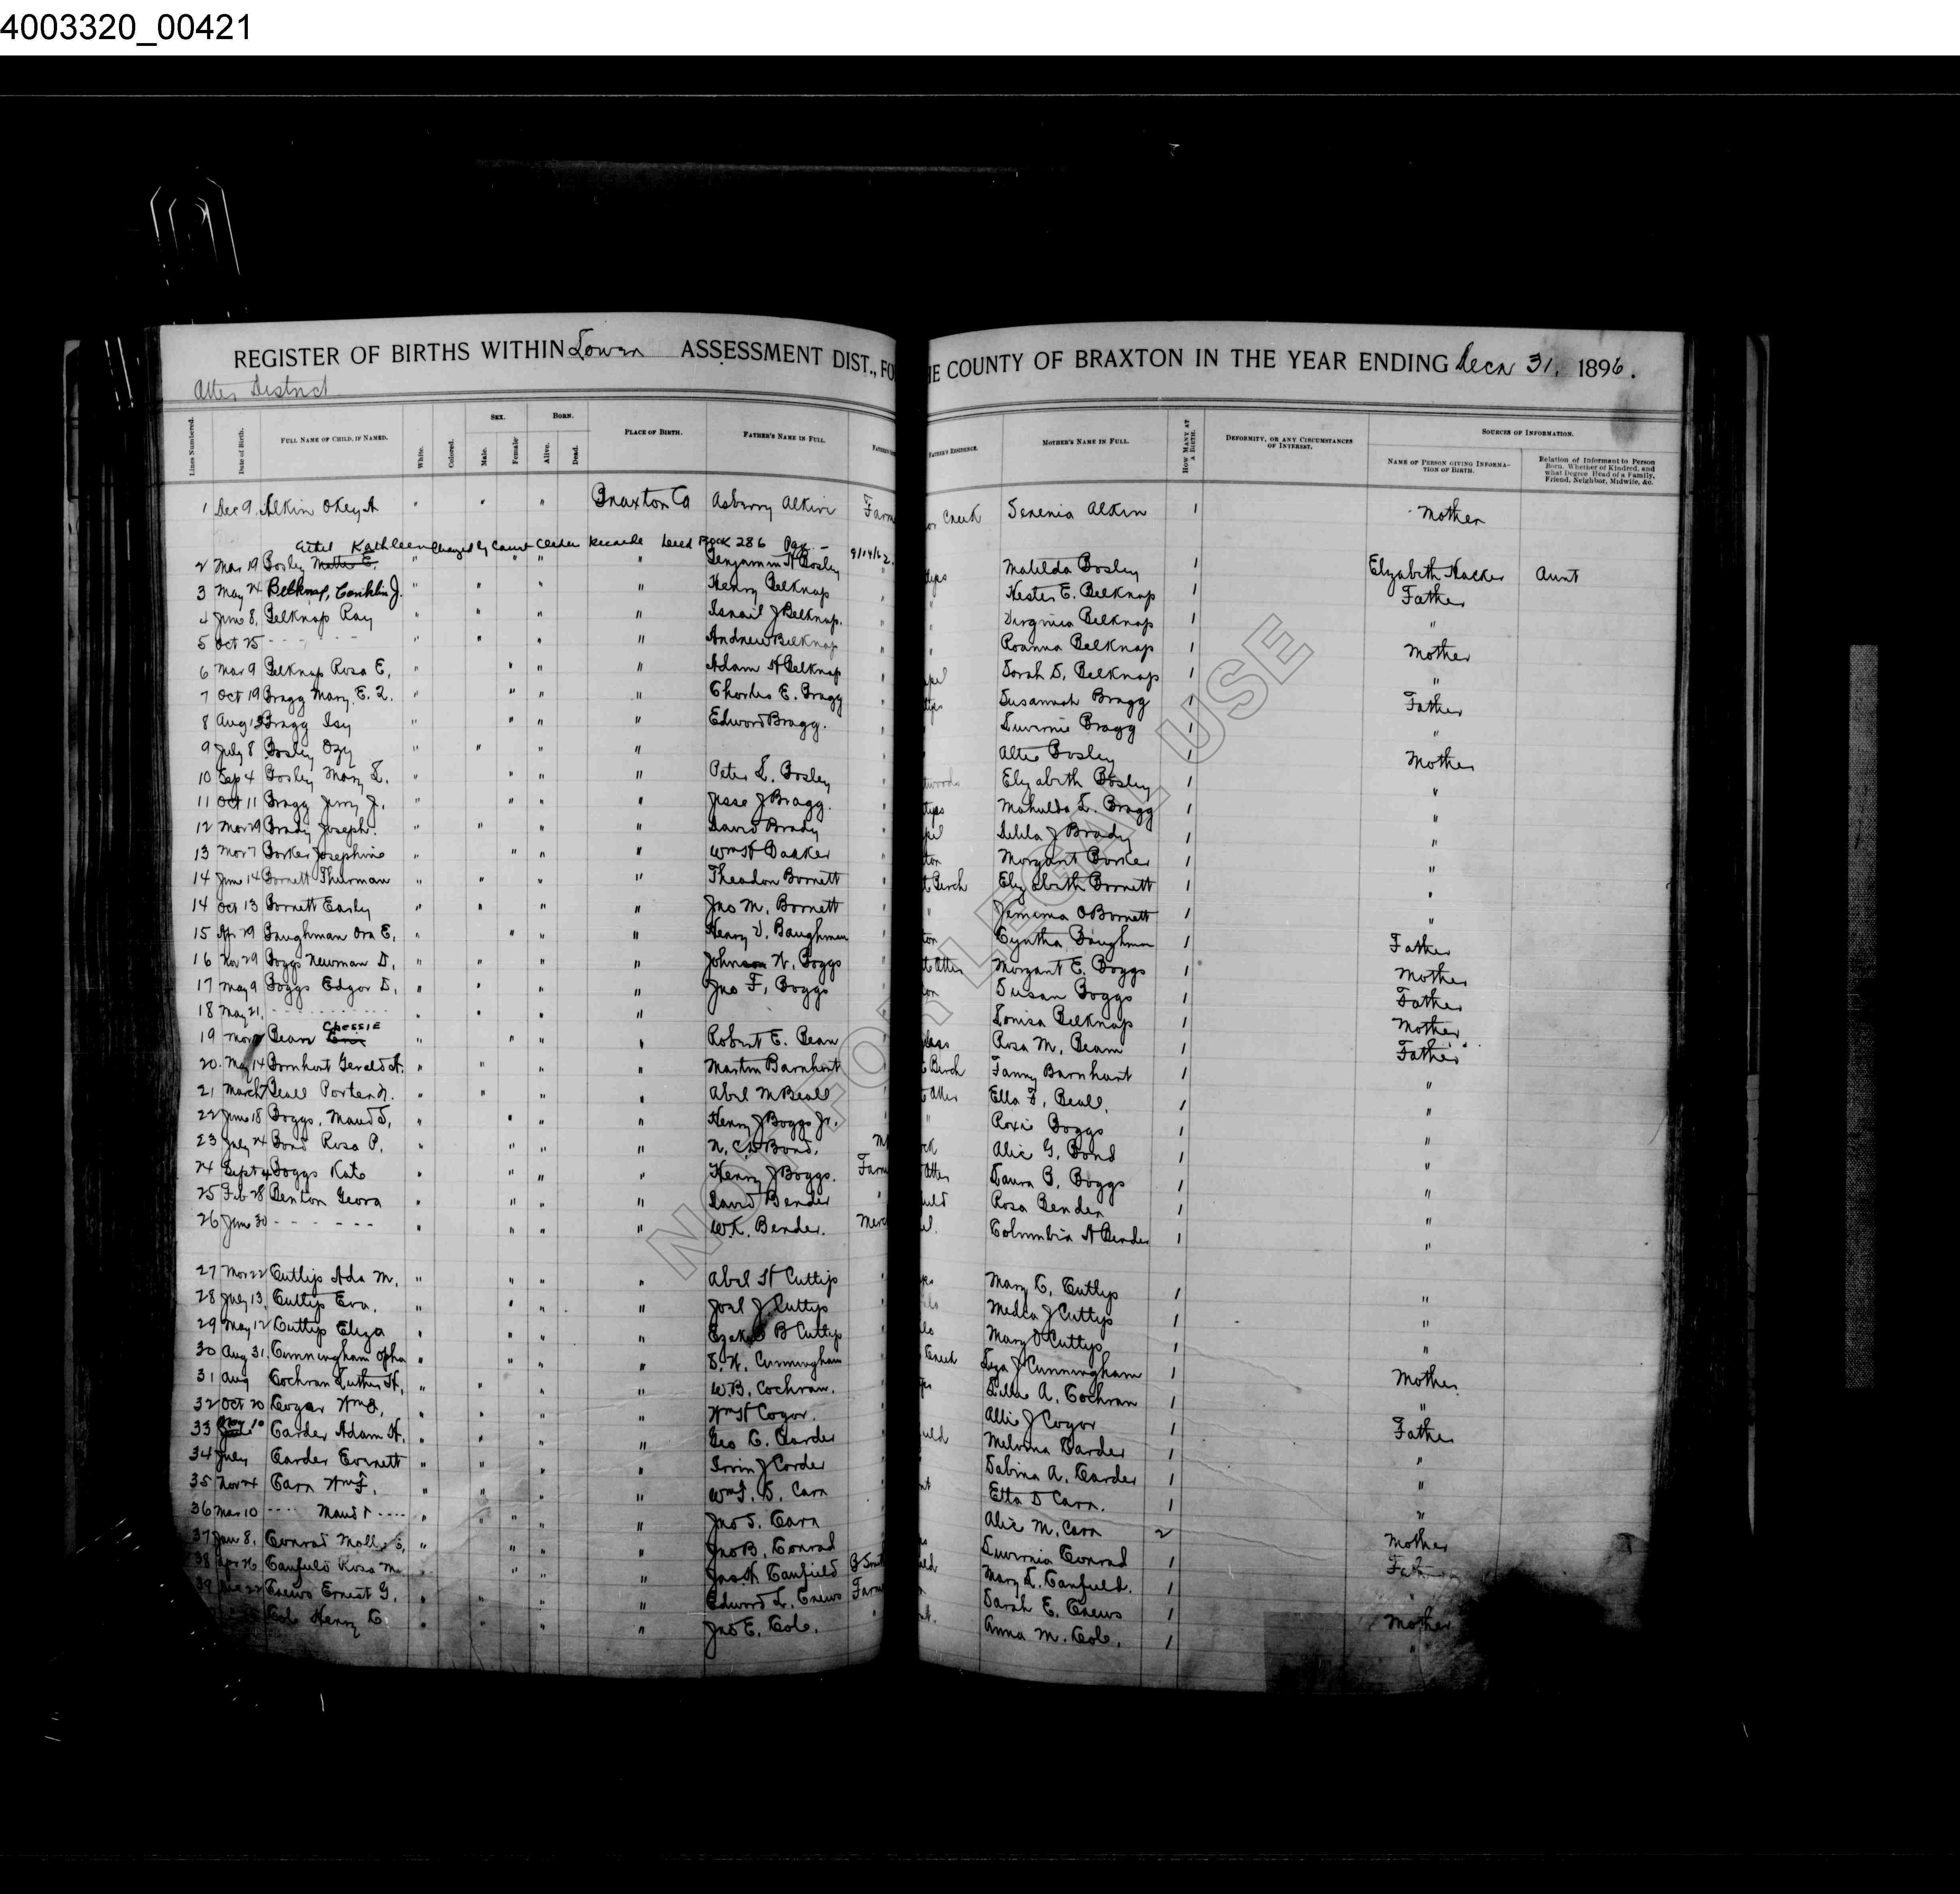 4003320_00421
REGISTER OF BIRTHS WITHIN Lower ASSESSMENT DIST., FO
HE COUNTY OF BRAXTON IN THE YEAR ENDING Decr 31, 1896.
Otter District
Lines Numbered. Date of Birth. FULL NAME OF CHILD, IF NAMED. White. Colored. SEX. Male. Female. BORN. Alive. Dead. PLACE OF BIRTH. FATHER'S NAME IN FULL.
FATHER'S RESIDENCE. MOTHER'S NAME IN FULL. HOW MANY AT A BIRTH. DEFORMITY, OR ANY CIRCUMSTANCES OF INTEREST. SOURCES OF INFORMATION.
NAME OF PERSON GIVING INFORMATION OF BIRTH. Relation of Informant to Person Born, Whether of Kindred, and what Degree Head of a Family, Friend, Neighbor, Midwife, &c.
1 Dec 9, Alkin Okey A " " " Braxton Co Asberry Alkin Farm Creek Serenia Alkin 1 Mother
Ethel Kathleen Changed by Court Order Records Deed Book 286 Pag - 9/14/62
2 Mar 19 Bosley Mattie E. " " " " Benjamin H Bosley Matilda Bosley 1 Elizabeth Hacker Aunt
3 May 24 Belknap, Conklin J. " " " " Henry Belknap Hester E. Belknap 1 Father
4 June 8, Belknap Ray " " " " Israil J Belknap. Virginia Belknap 1 "
5 Oct 25 - - - - " " " " Andrew Belknap Roanna Belknap 1 Mother
6 Mar 9 Belknap Rosa E, " " " " Adam H Belknap Sarah D, Belknap 1 "
7 Oct 19 Bragg Mary E. L. " " " " Charles E. Bragg Susannah Bragg 1 Father
8 Aug Bragg Isy " " " " Edward Bragg. Luvernie Bragg 1 "
9 July 8 Bosley Ozy " " " " Alte Bosley 1 Mother
10 Sep 4 Bosley Mary L. " " " " Peter L. Bosley Elizabeth Bosley 1 "
11 Oct 11 Bragg Jerry J. " " " " Jesse J Bragg. Mahulda L. Bragg 1 "
12 Mar 29 Brady Joseph. " " " " David Brady Delila J Brady 1 "
13 Mar 7 Barker Josephine " " " " Wm H Barker Margaret Barker 1 "
14 June 14 Barnett Thurman " " " " Theadon Barnett Birch Elizabeth Barnett 1 "
14 Oct 13 Barnett Easley " " " " Jno M. Barnett Jemima O Barnett 1 "
15 Apr 29 Baughman Ora E, " " " " Henry V. Baughman Cyntha Baughman 1 Father
16 Nov 29 Boggs Newman D, " " " " Johnson N. Boggs Otter Margaret E. Boggs 1 Mother
17 May 9 Boggs Edgar D, " " " " Jno F, Boggs Susan Boggs 1 Father
18 May 21, - - - - " " " " Louisa Belknap 1 Mother
Chessie
19 Mar Bean " " " " Robert E. Bean Rosa M. Beam 1 Father
20. May 14 Barnhart Gerald A. " " " " Martin Barnhart Birch Fanny Barnhart 1 "
21 March 7 Beall Porter N. " " " " Abel M Beall Otter Ella F. Beall, 1 "
22 June 18 Boggs, Maud S, " " " " Henry J Boggs Jr. " Roxie Boggs 1 "
23 July 24 Bond Rosa P. " " " " N. C. D Bond. Alice G. Bond 1 "
24 Sept 4 Boggs Kate " " " " Henry J Boggs. Farm Otter Laura B. Boggs 1 "
25 Feb 28 Benton Geora " " " " David Bender Rosa Bender 1 "
26 June 30 - - - - - - " " " " W. K. Bender. Merc Columbia A Bender 1 "
27 Mar 22 Cutlip Ada M, " " " " Abel H Cutlip Mary C, Cutlip 1 "
28 July 13, Cutlip Eva, " " " " Joel J. Cutlip Media J Cutlip 1 "
29 May 12 Cutlip Eliza " " " " Ezekel B Cutlip Mary O Cutlip 1 "
30 Aug 31, Cunningham Opha " " " " S. N. Cunningham Creek Liza J Cunningham 1 Mother
31 Aug Cochran Luther H, " " " " W. B. Cochran. Lillie A. Cochran 1 "
32 Oct 20 Cogar Wm O, " " " " Wm H Cogar. Allie J Cogar 1 Father
33 10 Carder Adam H, " " " " Geo C. Carder Melvina Carder 1 "
34 July Carder Evenett " " " " Irvin J Carder Sabina A. Carder 1 "
35 Nov 24 Carr Wm F, " " " " Wm F. S. Carr Etta D Carr. 1 "
36 Mar 10 - - - - Maud - - - - " " " " " Jno S. Carr Alice M. Carr 2 Mother
37 Jan 8, Conrad Mollie " " " " Jno B, Conrad Luvernia Conrad 1 Father
38 Apr 26 Canfield Rosa M " " " " Jas H. Canfield B Smit Mary L. Canfield. 1 "
39 22 Crews Ernest G, " " " " Edward L. Crews Farm Sarah E. Crews 1 Mother
Cole Henry C " " " " Jno E. Cole. Anna M. Cole, 1 "
NOT FOR LEGAL USE